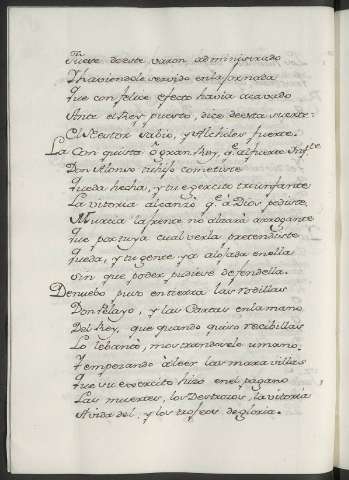 Fue de este varon administrado
Y haviendole servido en la jornada
Que con felice efecto havia acavado
Ante el Rey puesto, dice de esta suerte:
El Nestor sabio, y Alchiles fuerte.
La Con quista ô gran Rey, q.e al fuerte Infte
Don Alonso tu hijo cometiste
Queda hecha, y tu egercito triunfante
La vitoria alcanzó q.e a Dios pediste
Murcia la frente no alzará arrogante
Que por tuya cual verla pretendiste
Queda, y tu gente ya alojada en ella
Sin que poder pudiese defendella.
De nuebo puso en tierra las rodillas
Don Pelayo, y las Cartas en la mano
Del Rey, que quando quiso recibillas
Lo lebantó, mostrandosele umano.
Y empezando á leer las maravillas
Que su exercito hizo en el pagano
Las muertes, los Destrozos, la vitoria
Avida del, y los trofeos de gloria.